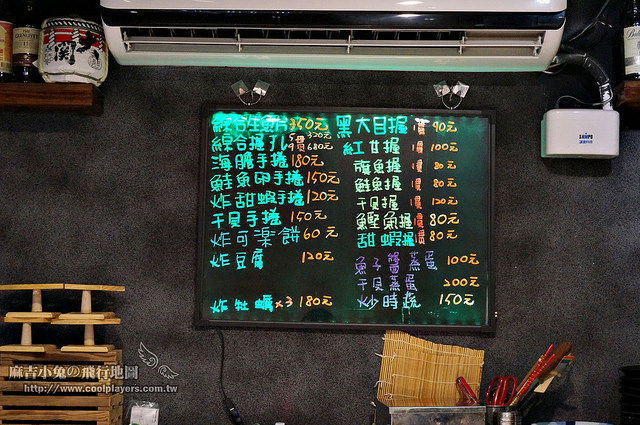 綜合生魚片350元
綜合握り5貫320元
9貫680元
海膽手捲180元
鮭魚卵手捲150元
炸甜蝦手捲120元
干貝手捲150元
炸可樂餅60元
炸豆腐120元
炸牡蠣×3 180元
黑大目握1貫90元
紅甘握1貫100元
旗魚握1貫80元
鮭魚握1貫80元
干貝握1貫120元
鰹魚握1貫80元
甜蝦握1貫80元
魚子醬蒸蛋100元
干貝蒸蛋200元
炒時蔬150元
SAMPO
麻吉小兔の飛行地圖
http://www.coolplayers.com.tw